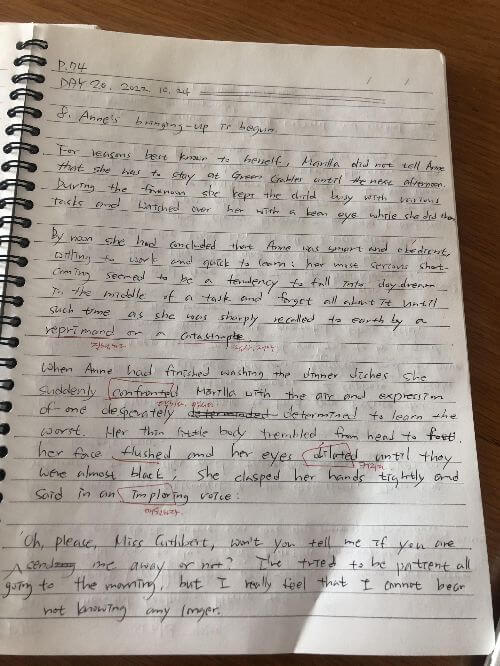 P.74
DAY 20. 2022. 10. 24
8. Anne's bringing-up is begun.
For reasons best known to herself, Marilla did not tell Anne
that she was to stay at Green Gables until the next afternoon.
During the forenoon she kept the child busy with various
tasks and watched over her with a keen eye while she did them
By noon she had concluded that Anne was smart and obedient,
willing to work and quick to learn: her most serious short-
coming seemed to be a tendency to fall into day dream
in the middle of a task and forget all about it until
such time as she was sharply recalled to earth by a
reprimand or a catastrophe.
When Anne had finished washing the dinner dishes she
suddenly confronted Marilla with the air and expression
of one desperately determined to learn the
worst. Her thin little body trembled from head to foot.
her face flushed and her eyes dilated until they
were almost black; she clasped her hands tightly and
said in an imploring voice:
'Oh, please, Miss Cuthbert, won't you tell me if you are
sending me away or not? I've tried to be patient all
going to the morning, but I really feel that I cannot bear
not knowing any longer.